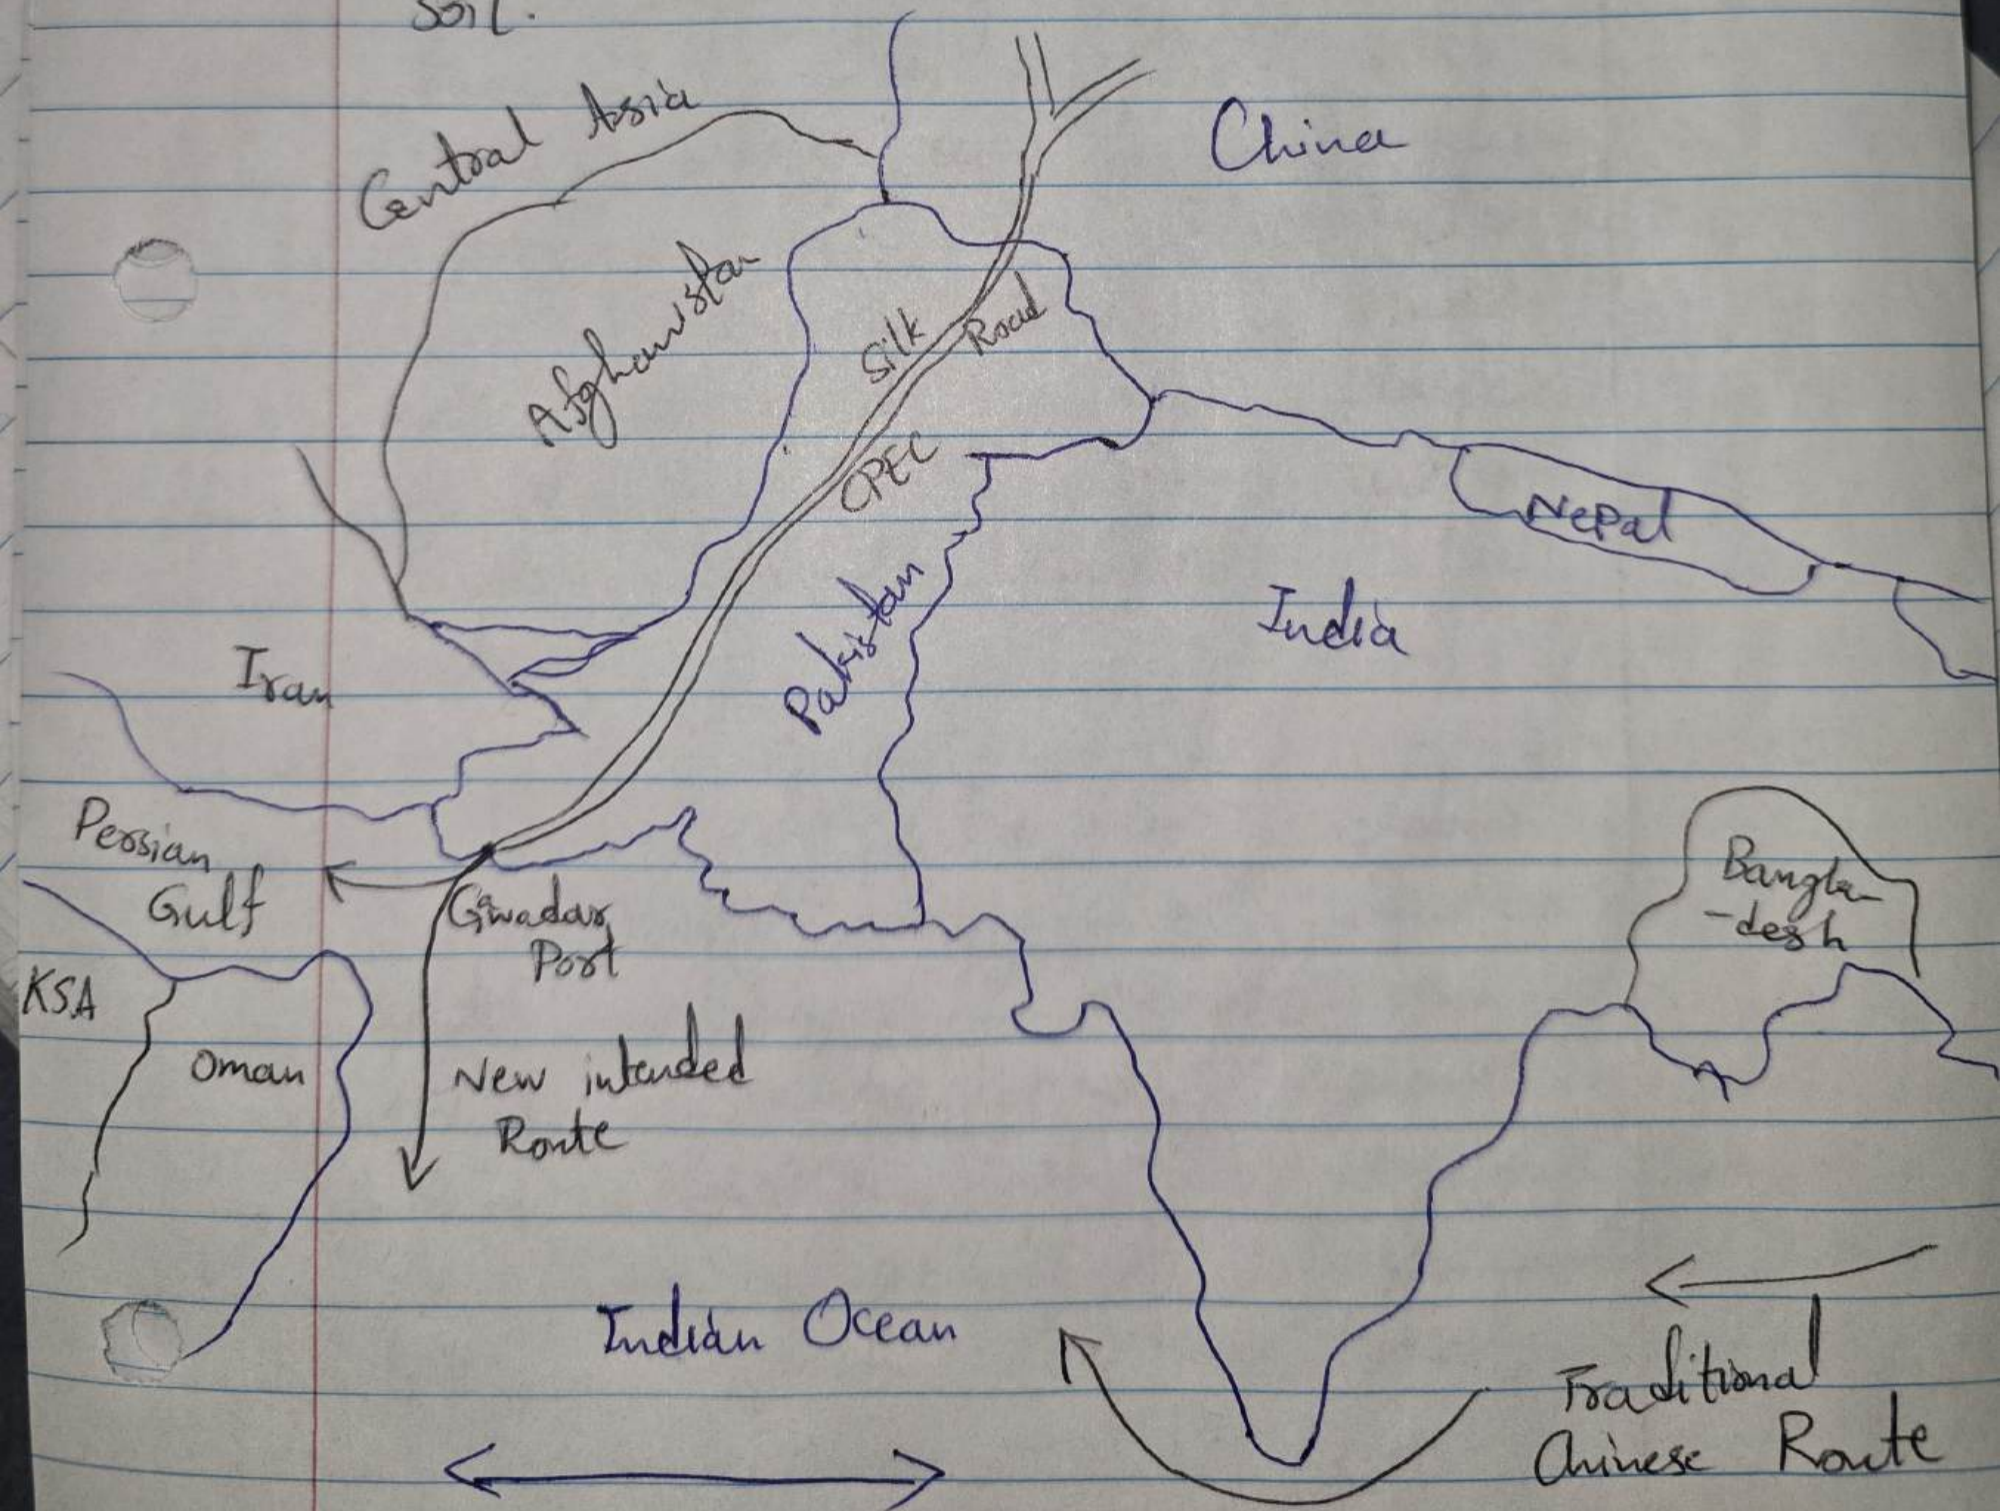 Soil.
Central Asia
China
Afghanistan
Silk Road
CPEC
Nepal
Pakistan
India
Iran
Persian
Gulf
Gwadar
Port
Bangla-
-desh
KSA
Oman
New intended
Route
Indian Ocean
Traditional
Chinese Route